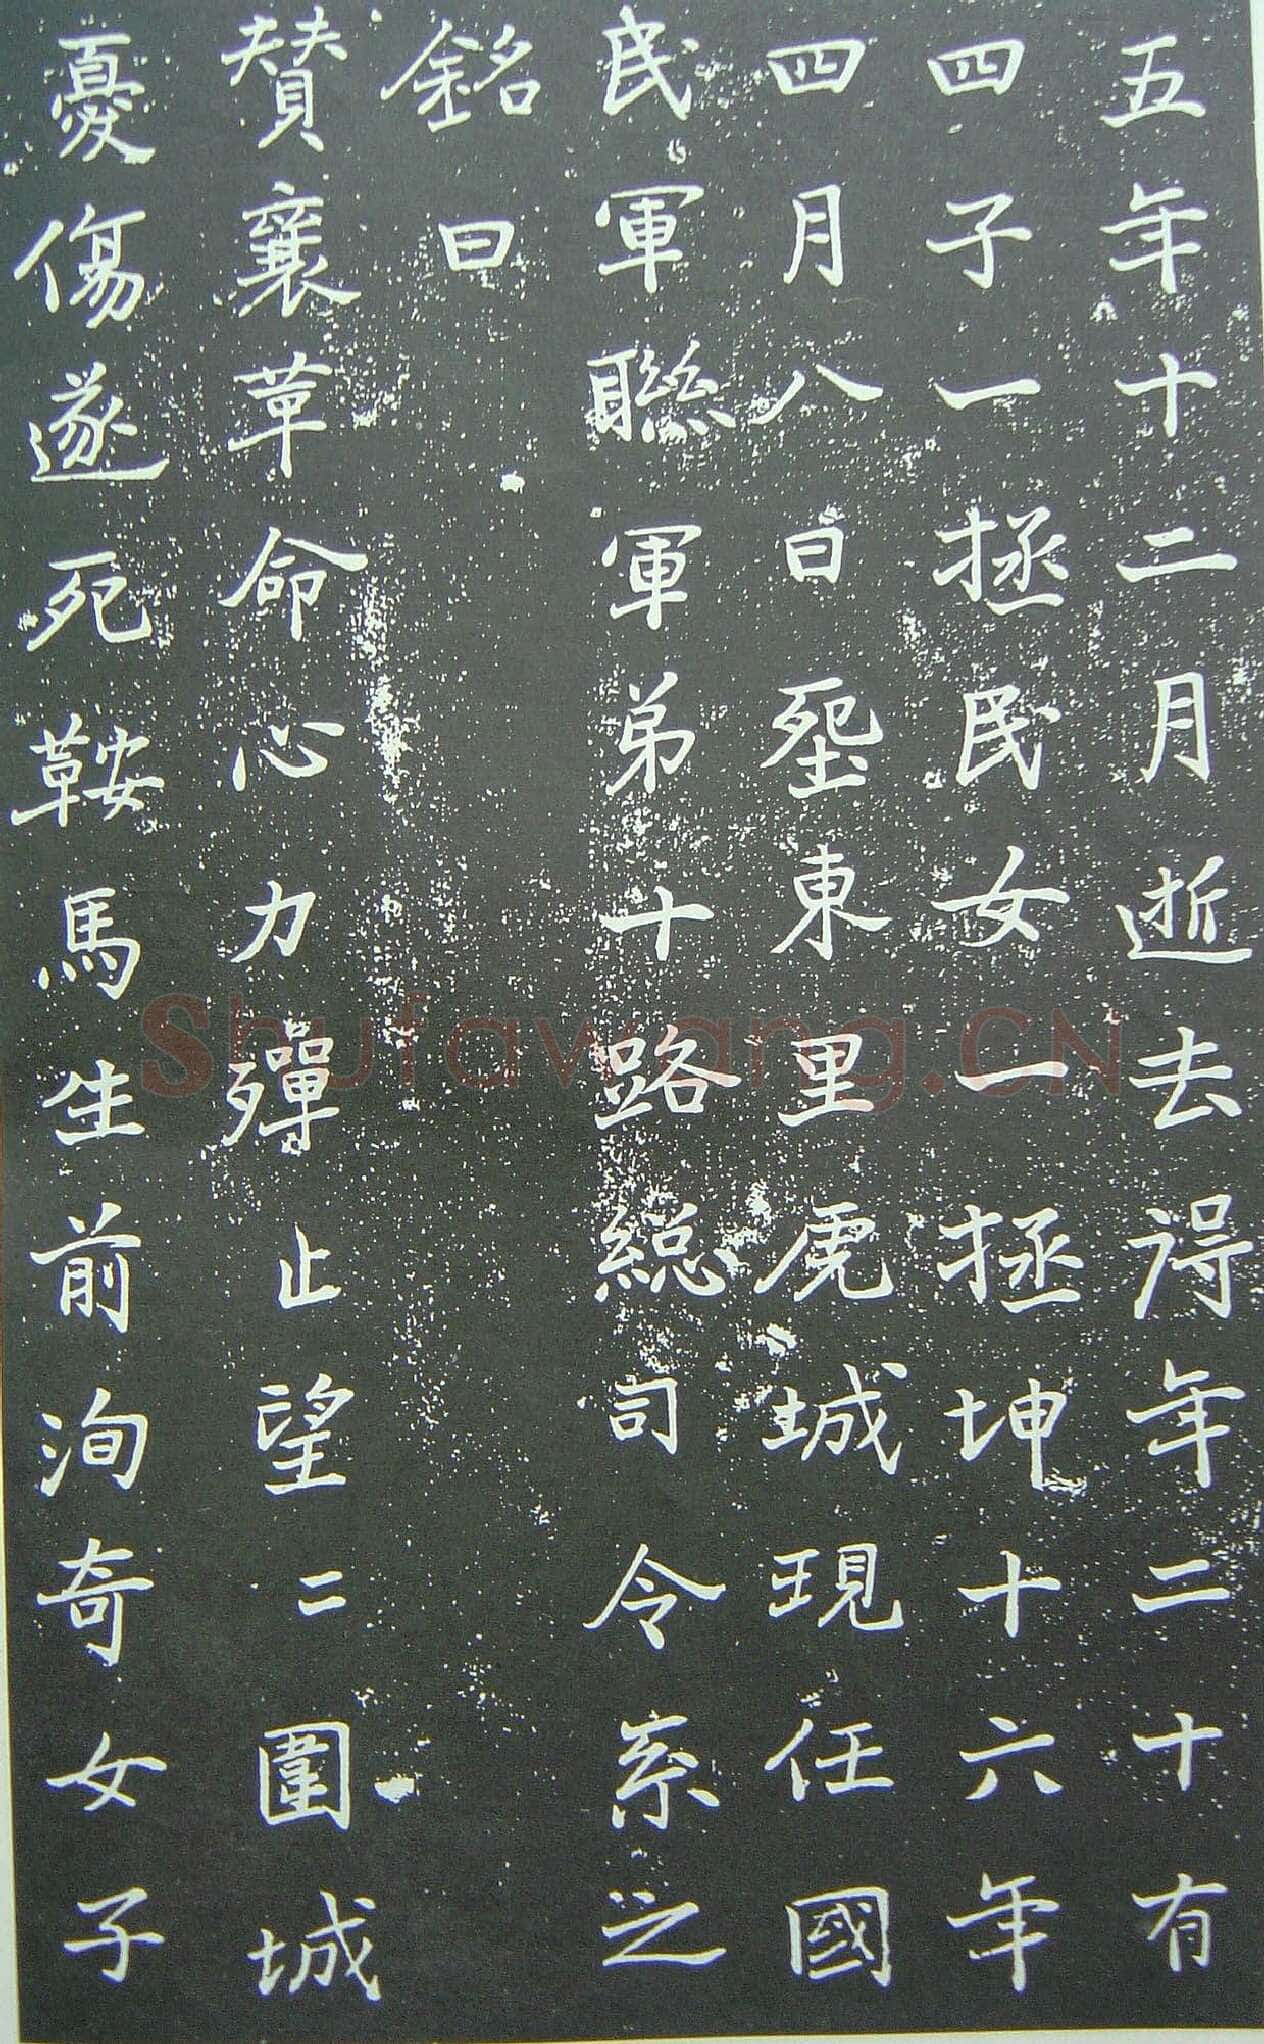 五年十二月逝去得年二十有
四子一拯民女一拯坤十六年
四月八日埊東里虎城現任國
民軍聯軍弟十路総司令系之
銘曰
賛襄革命心力殫止望二圍城
憂傷遂死鞍馬生前洵奇女子
Shufawang.CN